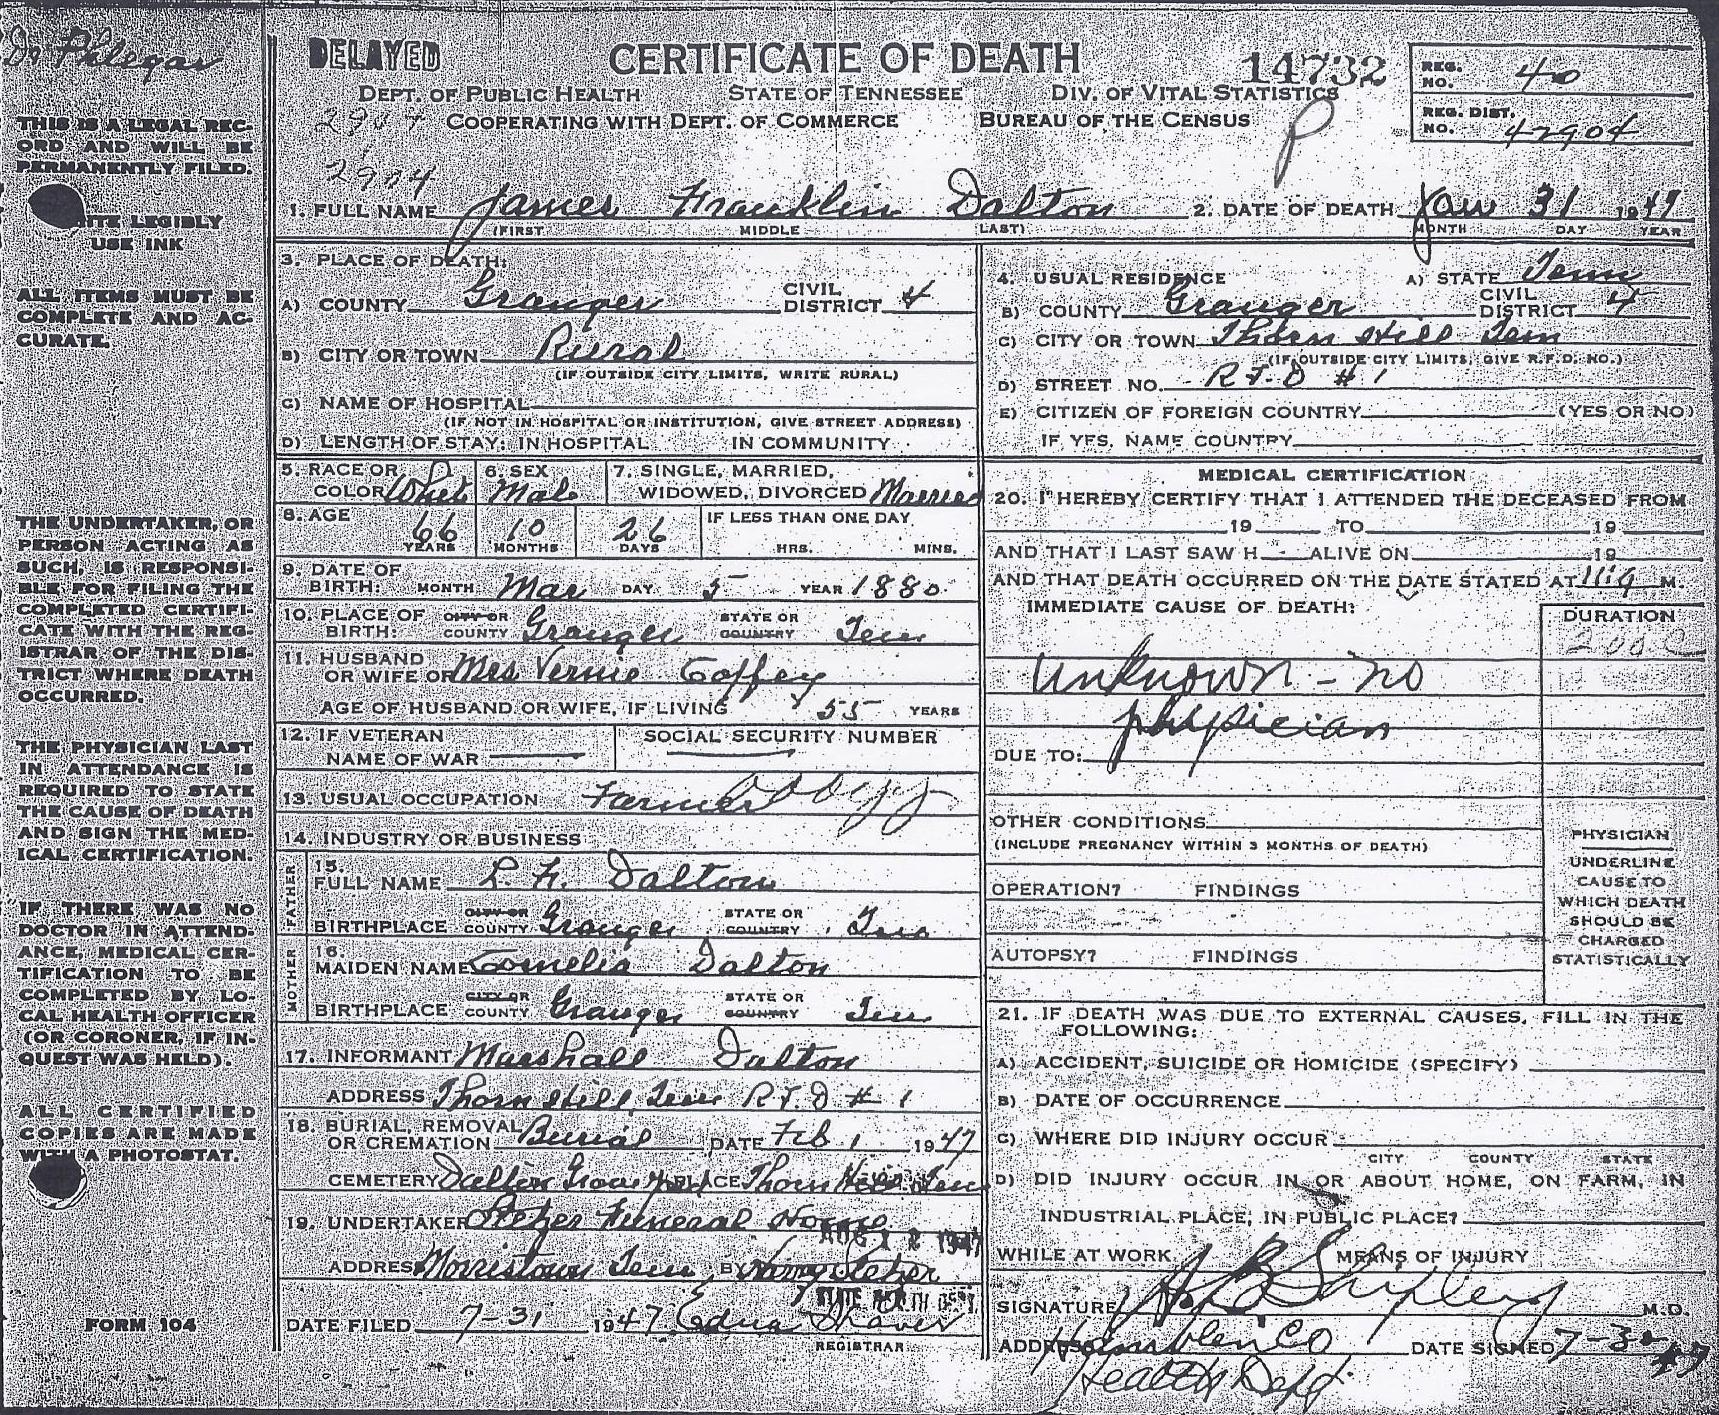 Dr Phlegar
THIS IS A LEGAL REC-
ORD AND WILL BE
PERMANENTLY FILED.
LEGIBLY
USE INK
ALL ITEMS MUST BE
COMPLETE AND AC-
CURATE.
THE UNDERTAKER, OR
PERSON ACTING AS
SUCH, IS RESPONSI-
BLE FOR FILING THE
COMPLETED CERTIFI-
CATE WITH THE REG-
ISTRAR OF THE DIS-
TRICT WHERE DEATH
OCCURRED.
THE PHYSICIAN LAST
IN ATTENDANCE IS
REQUIRED TO STATE
THE CAUSE OF DEATH
AND SIGN THE MED-
ICAL CERTIFICATION.
IF THERE WAS NO
DOCTOR IN ATTEND-
ANCE, MEDICAL CER-
TIFICATION TO BE
COMPLETED BY LO-
CAL HEALTH OFFICER
(OR CORONER, IF IN-
QUEST WAS HELD).
ALL CERTIFIED
COPIES ARE MADE
WITH A PHOTOSTAT.
FORM 104
DELAYED
CERTIFICATE OF DEATH
14732
REG. NO. 40
DEPT. OF PUBLIC HEALTH STATE OF TENNESSEE DIV. OF VITAL STATISTICS
COOPERATING WITH DEPT. OF COMMERCE BUREAU OF THE CENSUS
REG. DIST. NO. 47904
P
2904
1. FULL NAME James Franklin Dalton 2. DATE OF DEATH Jan 31 1947
(FIRST MIDDLE LAST) MONTH DAY YEAR
3. PLACE OF DEATH:
A) COUNTY Granger CIVIL DISTRICT 4
B) CITY OR TOWN Rural
(IF OUTSIDE CITY LIMITS, WRITE RURAL)
C) NAME OF HOSPITAL
(IF NOT IN HOSPITAL OR INSTITUTION, GIVE STREET ADDRESS)
D) LENGTH OF STAY: IN HOSPITAL IN COMMUNITY
5. RACE OR COLOR White 6. SEX Male 7. SINGLE, MARRIED, WIDOWED, DIVORCED Married
8. AGE 66 YEARS 10 MONTHS 26 DAYS IF LESS THAN ONE DAY HRS. MINS.
9. DATE OF BIRTH: MONTH Mar DAY 5 YEAR 1880
10. PLACE OF BIRTH: CITY OR COUNTY Granger STATE OR COUNTRY Tenn
11. HUSBAND OR WIFE OF Mrs Vernie Coffey
AGE OF HUSBAND OR WIFE, IF LIVING 55 YEARS
12. IF VETERAN NAME OF WAR SOCIAL SECURITY NUMBER
13. USUAL OCCUPATION Farmer
14. INDUSTRY OR BUSINESS
FATHER
15. FULL NAME L. F. Dalton
BIRTHPLACE CITY OR COUNTY Granger STATE OR COUNTRY Tenn
MOTHER
16. MAIDEN NAME Cornelia Dalton
BIRTHPLACE CITY OR COUNTY Granger STATE OR COUNTRY Tenn
17. INFORMANT Marshall Dalton
ADDRESS Thorn Hill, Tenn R.F.D # 1
18. BURIAL, REMOVAL OR CREMATION Burial DATE Feb 1 1947
CEMETERY Dalton Grave Yard PLACE Thorn Hill Tenn
19. UNDERTAKER Stetzer Funeral Home
AUG 12 1947
ADDRESS Morristown Tenn BY Stetzer
STATE HEALTH DEPT.
DATE FILED 7-31 1947 Edna Shaver
REGISTRAR
4. USUAL RESIDENCE A) STATE Tenn
B) COUNTY Granger CIVIL DISTRICT 4
C) CITY OR TOWN Thorn Hill Tenn
(IF OUTSIDE CITY LIMITS, GIVE R.F.D. NO.)
D) STREET NO. R.F.D # 1
E) CITIZEN OF FOREIGN COUNTRY (YES OR NO)
IF YES, NAME COUNTRY
MEDICAL CERTIFICATION
20. I HEREBY CERTIFY THAT I ATTENDED THE DECEASED FROM
19 TO 19
AND THAT I LAST SAW H ALIVE ON 19
AND THAT DEATH OCCURRED ON THE DATE STATED AT M.
IMMEDIATE CAUSE OF DEATH: DURATION
200c
unknown - no
physician
DUE TO:
OTHER CONDITIONS
(INCLUDE PREGNANCY WITHIN 3 MONTHS OF DEATH)
OPERATION? FINDINGS
AUTOPSY? FINDINGS
PHYSICIAN
UNDERLINE
CAUSE TO
WHICH DEATH
SHOULD BE
CHARGED
STATISTICALLY
21. IF DEATH WAS DUE TO EXTERNAL CAUSES, FILL IN THE
FOLLOWING:
A) ACCIDENT, SUICIDE OR HOMICIDE (SPECIFY)
B) DATE OF OCCURRENCE
C) WHERE DID INJURY OCCUR
CITY COUNTY STATE
D) DID INJURY OCCUR IN OR ABOUT HOME, ON FARM, IN
INDUSTRIAL PLACE, IN PUBLIC PLACE?
WHILE AT WORK MEANS OF INJURY
SIGNATURE B Shipley M.D.
ADDRESS Hamblen Co DATE SIGNED 7-30-47
Health Dept.